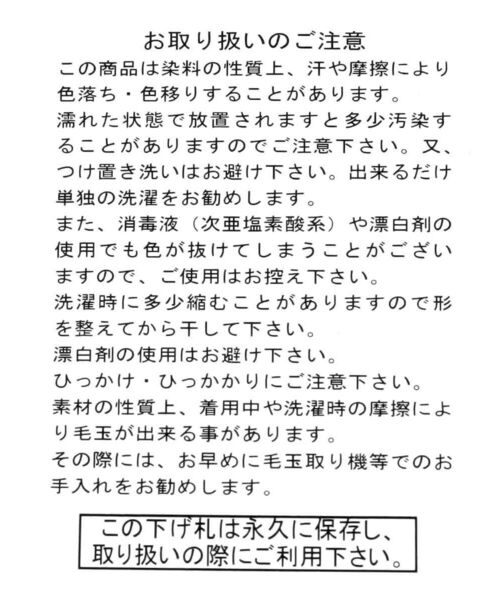 お取り扱いのご注意
この商品は染料の性質上、汗や摩擦により
色落ち・色移りすることがあります。
濡れた状態で放置されますと多少汚染す
ることがありますのでご注意下さい。又、
つけ置き洗いはお避け下さい。出来るだけ
単独の洗濯をお勧めします。
また、消毒液（次亜塩素酸系）や漂白剤の
使用でも色が抜けてしまうことがござい
ますので、ご使用はお控え下さい。
洗濯時に多少縮むことがありますので形
を整えてから干して下さい。
漂白剤の使用はお避け下さい。
ひっかけ・ひっかかりにご注意下さい。
素材の性質上、着用中や洗濯時の摩擦によ
り毛玉が出来る事があります。
その際には、お早めに毛玉取り機等でのお
手入れをお勧めします。
この下げ札は永久に保存し、
取り扱いの際にご利用下さい。